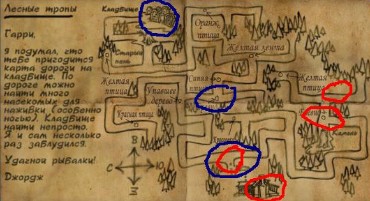 Лесные тропы
Гарри,
Я подумал, что
тебе пригодится
карта дороги на
кладбище. По
дороге можно
найти много
насекомых для
наживки (особенно
ночью). Кладбище
найти непросто.
Я и сам несколько
раз заблудился.
Удачной рыбалки!
Джордж
Кладбище
Старый
Оранж.
птица
Желтая лента
Желтая
птица
Упавшее
дерево
Синяя
птица
Желтая
птица
Красная птица
В
С
Ю
З